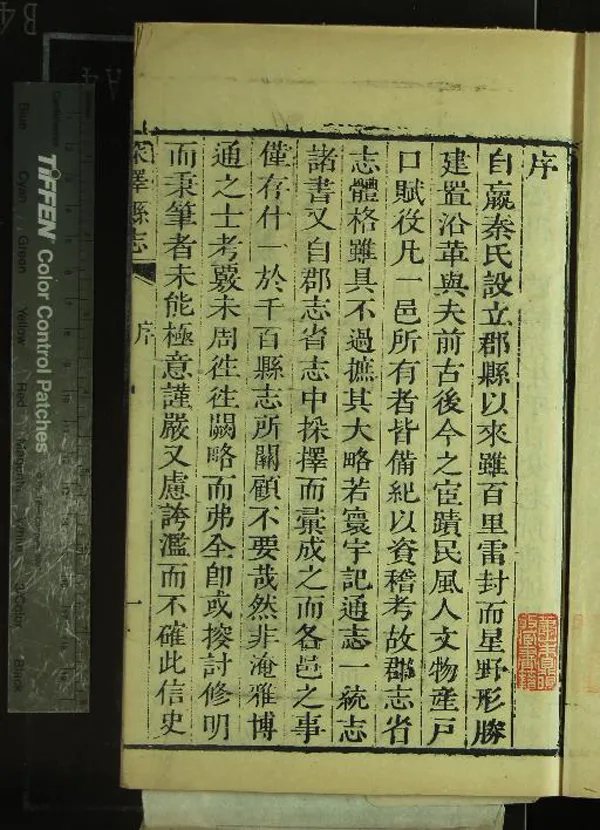 序
自嬴秦氏設立郡縣以來雖百里雷封而星野形勝
建置沿革與夫前古後今之宦蹟民風人文物產戶
口賦役凡一邑所有者皆備紀以資稽考故郡志省
志體格雖具不過摭其大略若寰宇記通志一統志
諸書又自郡志省志中採擇而彙成之而各邑之事
僅存什一於千百縣志所關顧不要哉然非淹雅博
通之士考覈未周徃徃闕略而弗全卽或搜討修明
而秉筆者未能極意謹嚴又慮誇濫而不確此信史
深澤縣志
序
一
TIFFEN Color Control Patches
Blue
Cyan
Green
Yellow
Red
Magenta
White
3/Color
Black
A4
B4